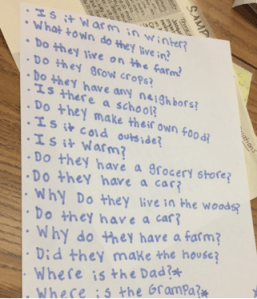 · Is it warm in winter?
· What town do they live in?
· Do they live on the farm?
· Do they grow crops?
· Do they have any neighbors?
· Is there a school?
· Do they make their own food?
· Is it cold outside?
· Is it warm?
· Do they have a grocery store?
· Do they have a car?
· Why Do they live in the woods?
· Do they have a car?
· Why do they have a farm?
· Did they make the house?
· Where is the Dad?*
· Where is the Grampa?*